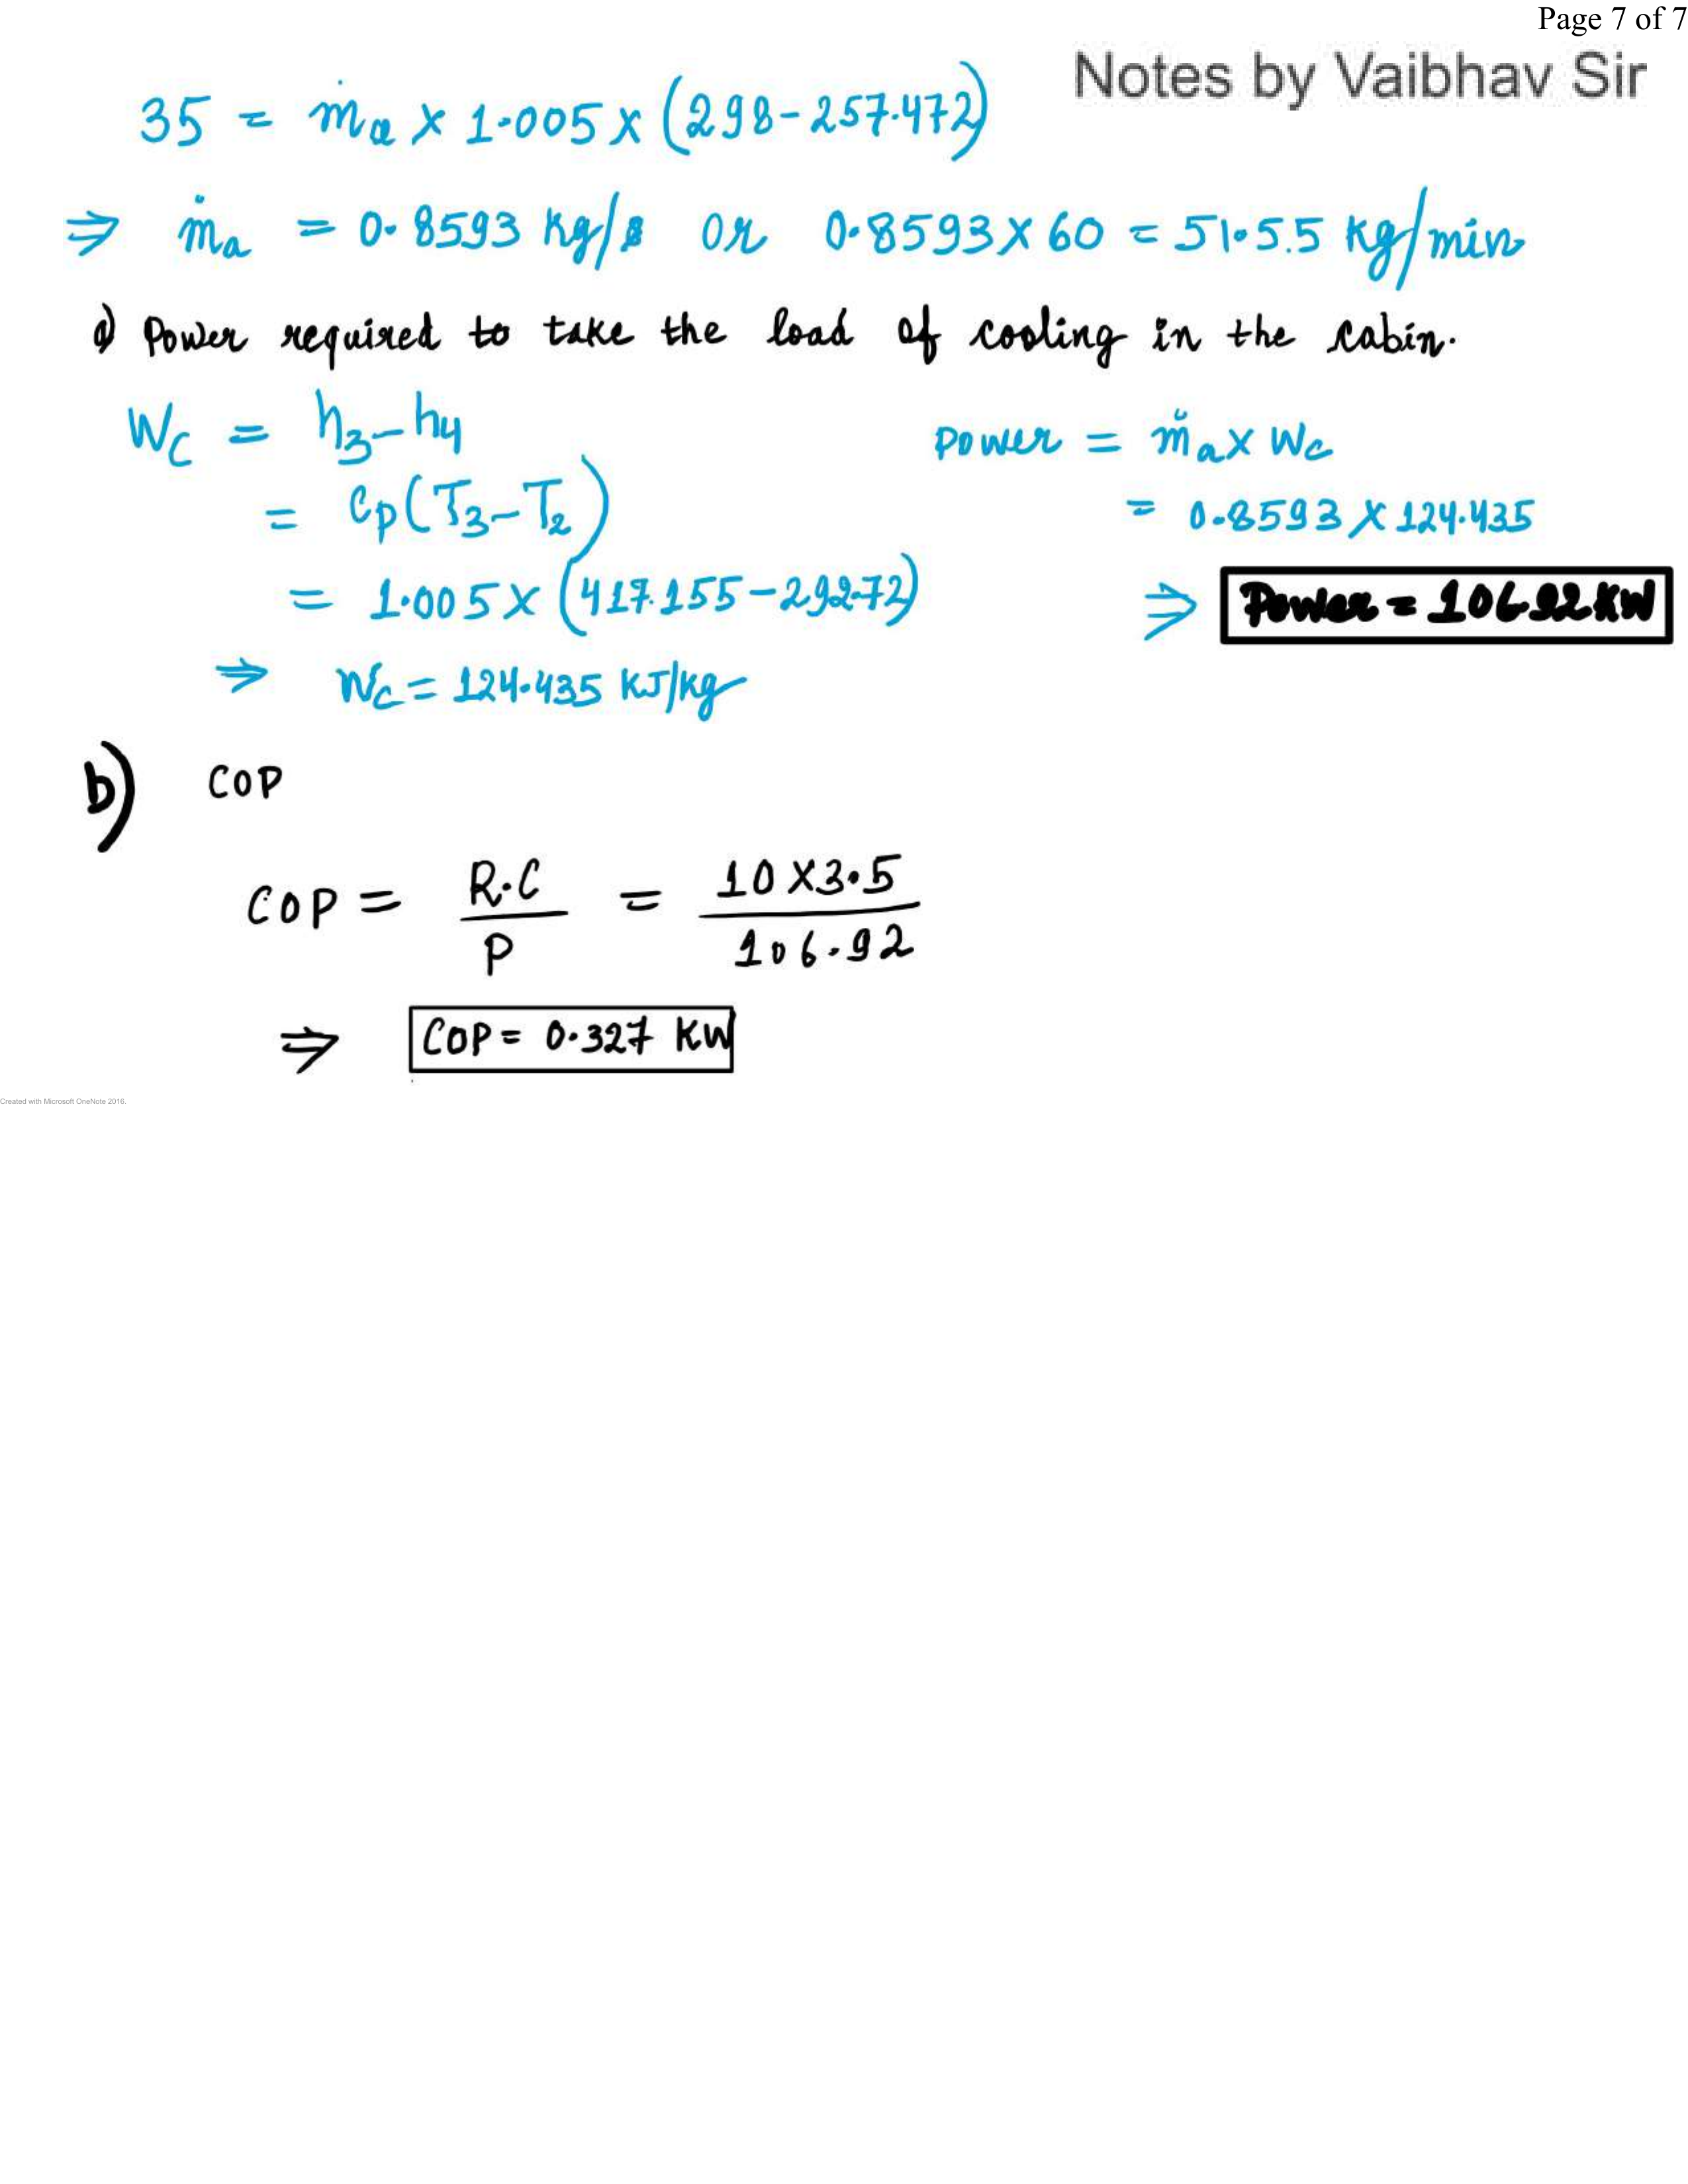 Page 7 of 7
Notes by Vaibhav Sir
35 = ṁa × 1.005 × (298-257.472)
⇒ ṁa = 0.8593 kg/s or 0.8593 × 60 = 51.5.5 kg/min
a) Power required to take the load of cooling in the cabin.
Wc = h3-h4
= Cp(T3-T2)
= 1.005 × (417.155-292.72)
⇒ Wc = 124.435 KJ/kg
Power = ṁa × Wc
= 0.8593 × 124.435
⇒ Power = 106.92 KW
b) COP
COP = R.C / P = 10 × 3.5 / 106.92
⇒ COP = 0.327 KW
Created with Microsoft OneNote 2016.